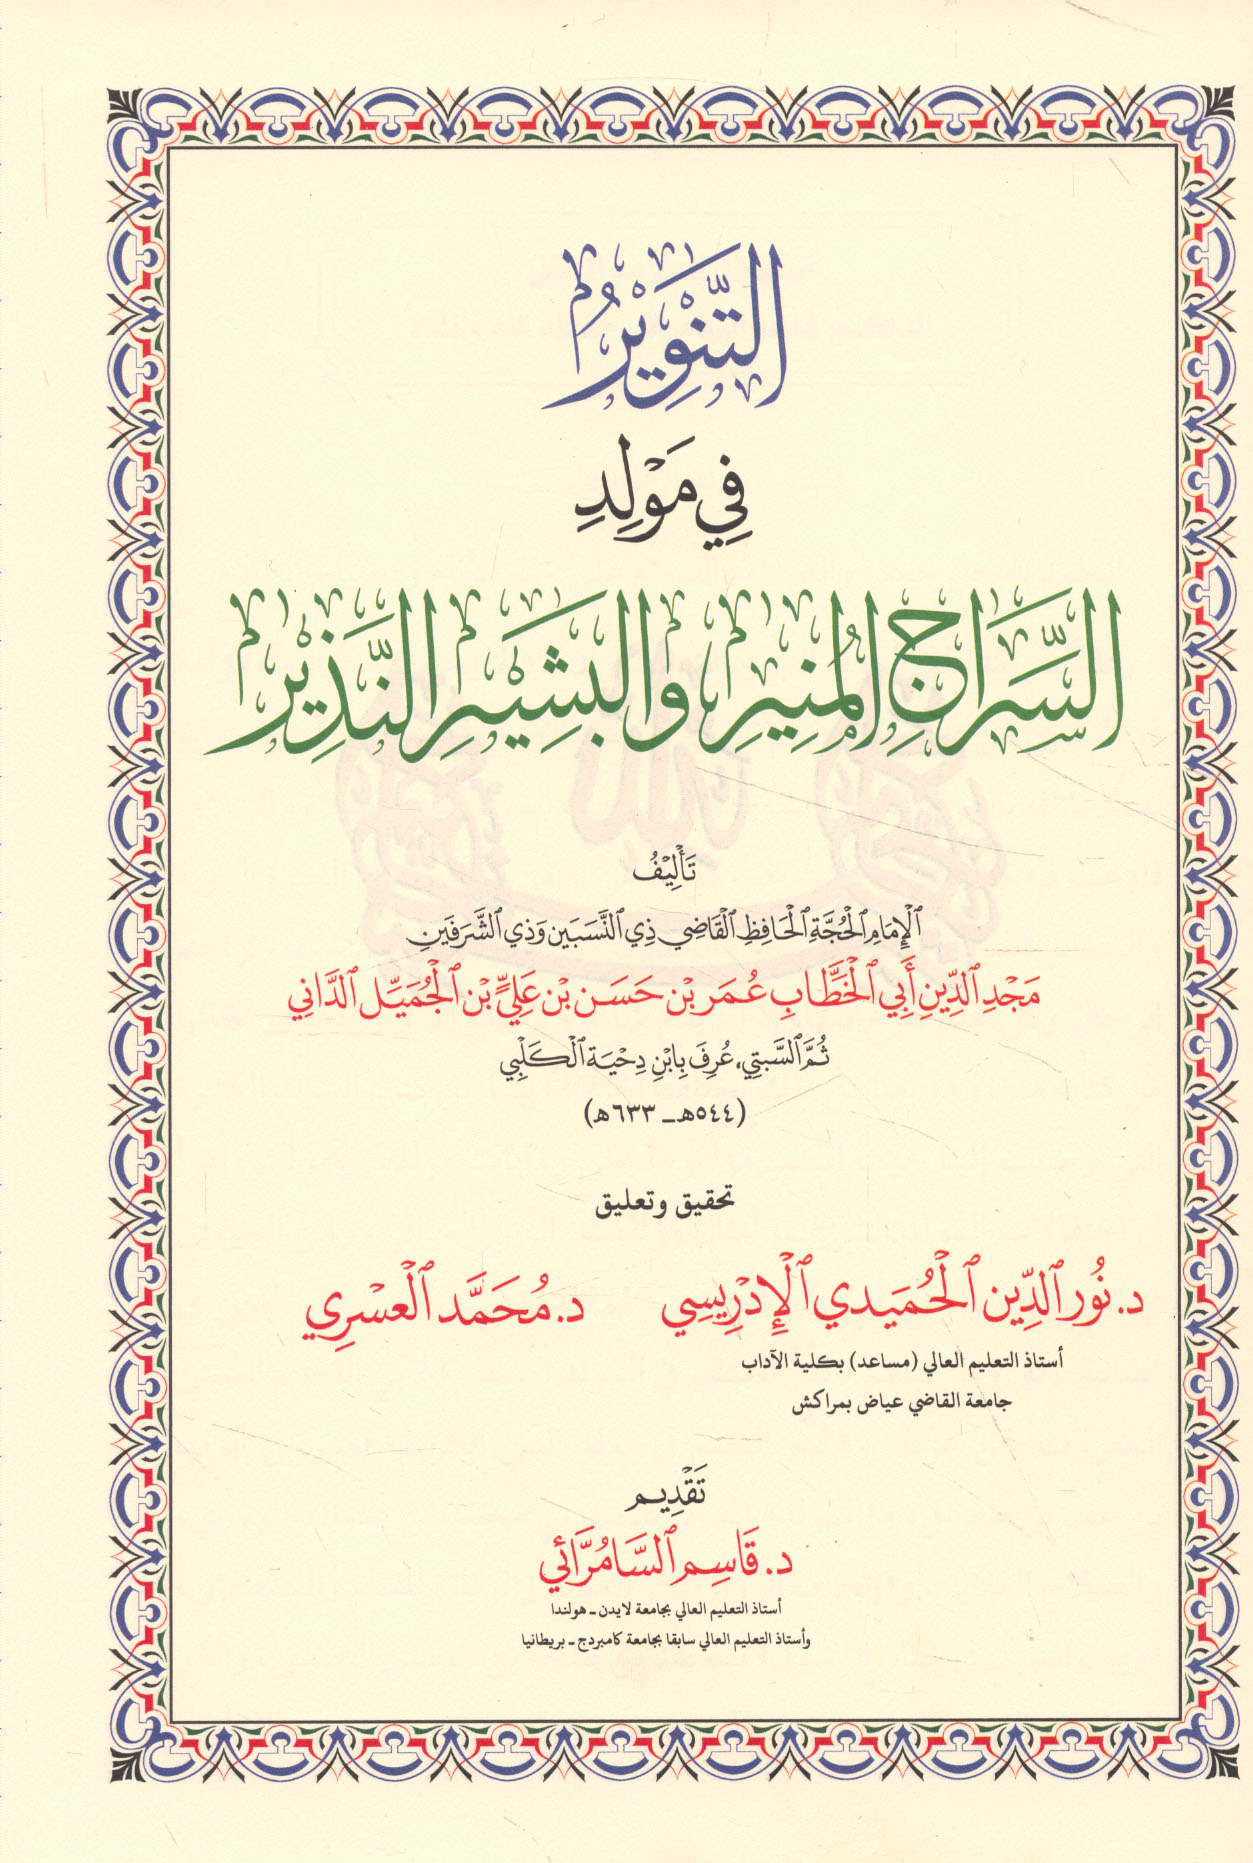 التَّنْوِيْرُ
فِي مَوْلِدِ
السِّرَاجِ المُنِيرِ وَالبَشِيْرِ النَّذِيْرِ
تَأْلِيْفُ
الْإِمَامِ الْحُجَّةِ الْحَافِظِ الْقَاضِي ذِي النَّسَبَيْنِ وَذِي الشَّرَفَيْنِ
مَجْدِ الدِّينِ أَبِي الْخَطَّابِ عُمَر بْن حَسَن بْن عَلِيٍّ بْن الْجُمَيِّل الدَّانِي
ثُمَّ السَّبْتِي، عُرِفَ بِابْنِ دِحْيَة الْكَلْبِي
(٥٤٤هـ - ٦٣٣هـ)
تحقيق وتعليق
د. نُور الدِّين الْحُمَيدي الْإِدْرِيسِي
د. مُحَمَّد الْعَسْرِي
أستاذ التعليم العالي (مساعد) بكلية الآداب
جامعة القاضي عياض بمراكش
تَقْدِيم
د. قَاسِم السَّامُرَّائِي
أستاذ التعليم العالي بجامعة لايدن - هولندا
وأستاذ التعليم العالي سابقا بجامعة كامبردج - بريطانيا